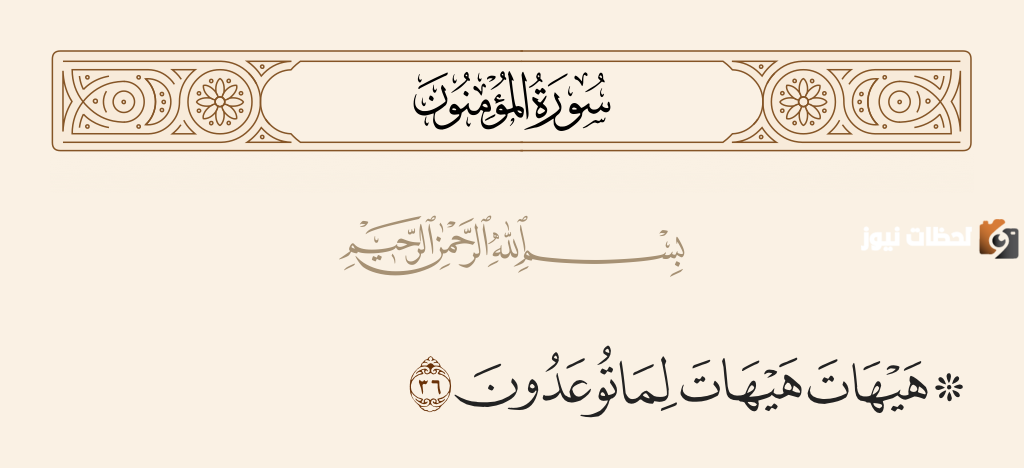 سُورَةُ المُؤْمِنُونَ
بِسْمِ ٱللَّهِ ٱلرَّحْمَٰنِ ٱلرَّحِيمِ
لحظات نيوز
۞ هَيْهَاتَ هَيْهَاتَ لِمَا تُوعَدُونَ ٣٦